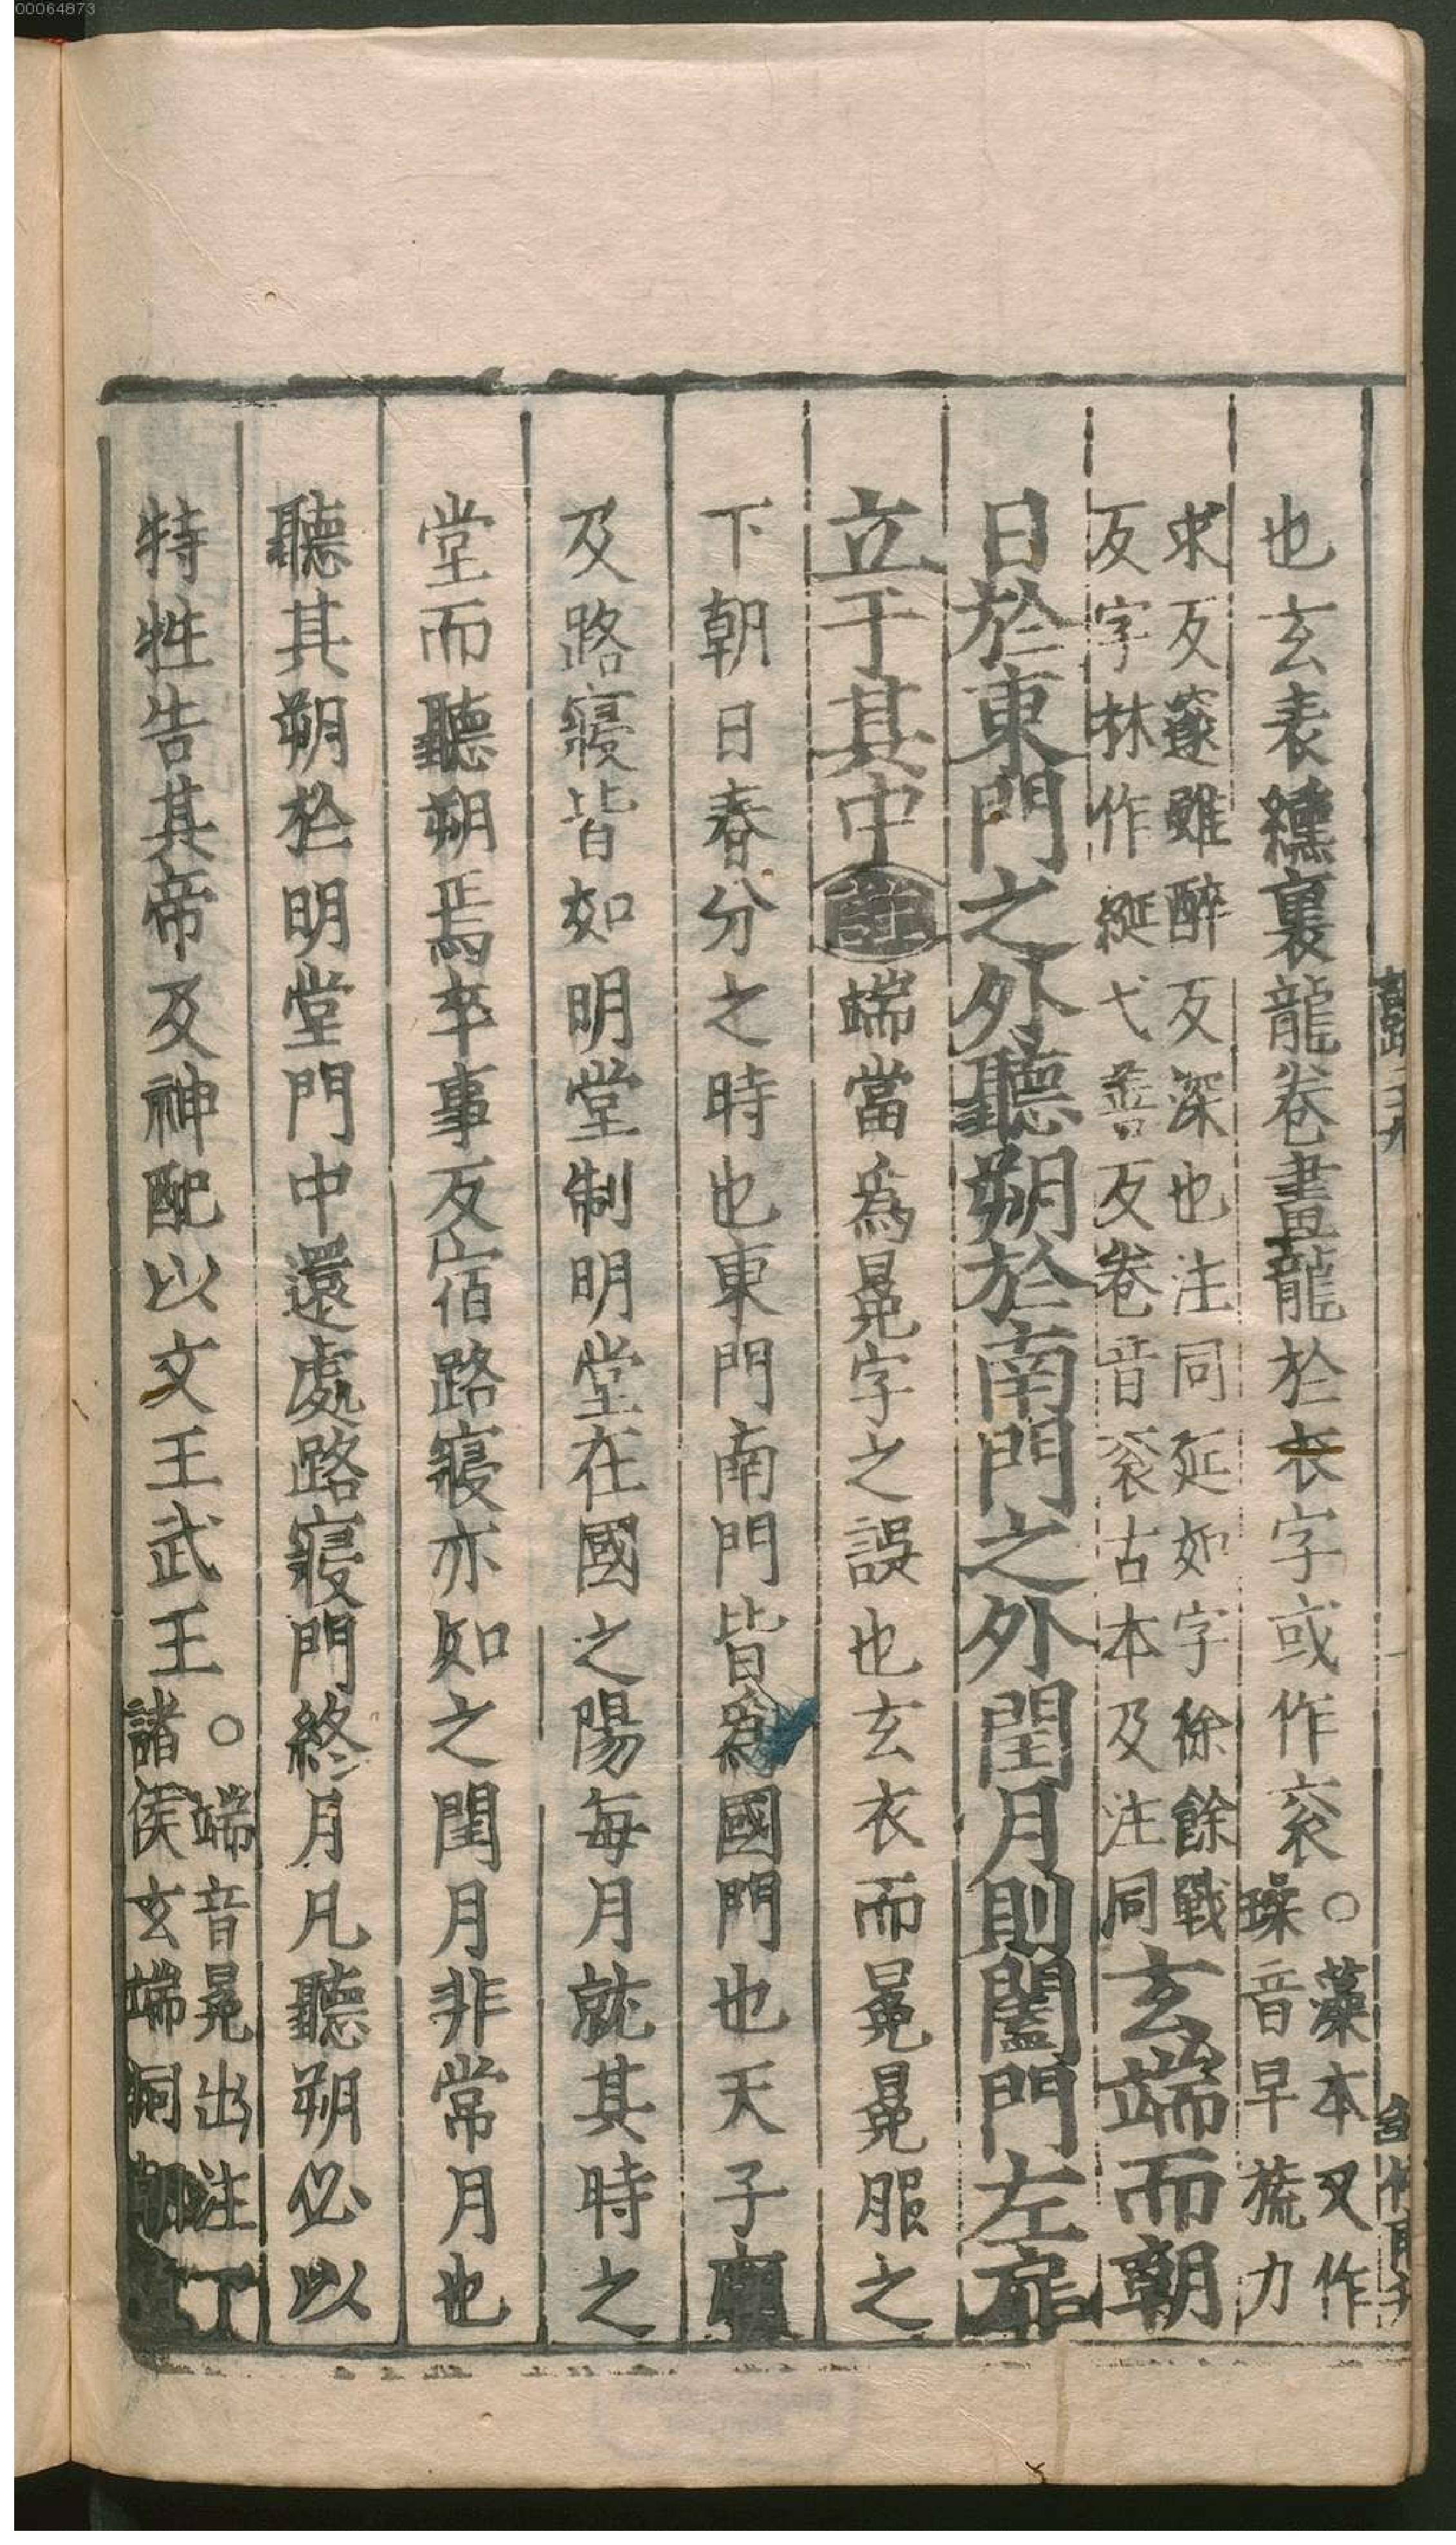 00064873
也玄表纁裏龍卷畫龍於衣字或作衮○藻本又作
璪音早旒力
求反邃雖醉反深也注同延如字徐餘戰
反字林作綖弋善反卷音衮古本及注同玄端而朝
日於東門之外聽朔於南門之外閏月則闔門左扉
立于其中註端當爲冕字之誤也玄衣而冕冕服之
下朝日春分之時也東門南門皆爲國門也天子廟
及路寢皆如明堂制明堂在國之陽每月就其時之
堂而聽朔焉卒事反宿路寢亦如之閏月非常月也
聽其朔於明堂門中還處路寢門終月凡聽朔必以
特牲告其帝及神配以文王武王○端音冕出注下
諸侯玄端同朝